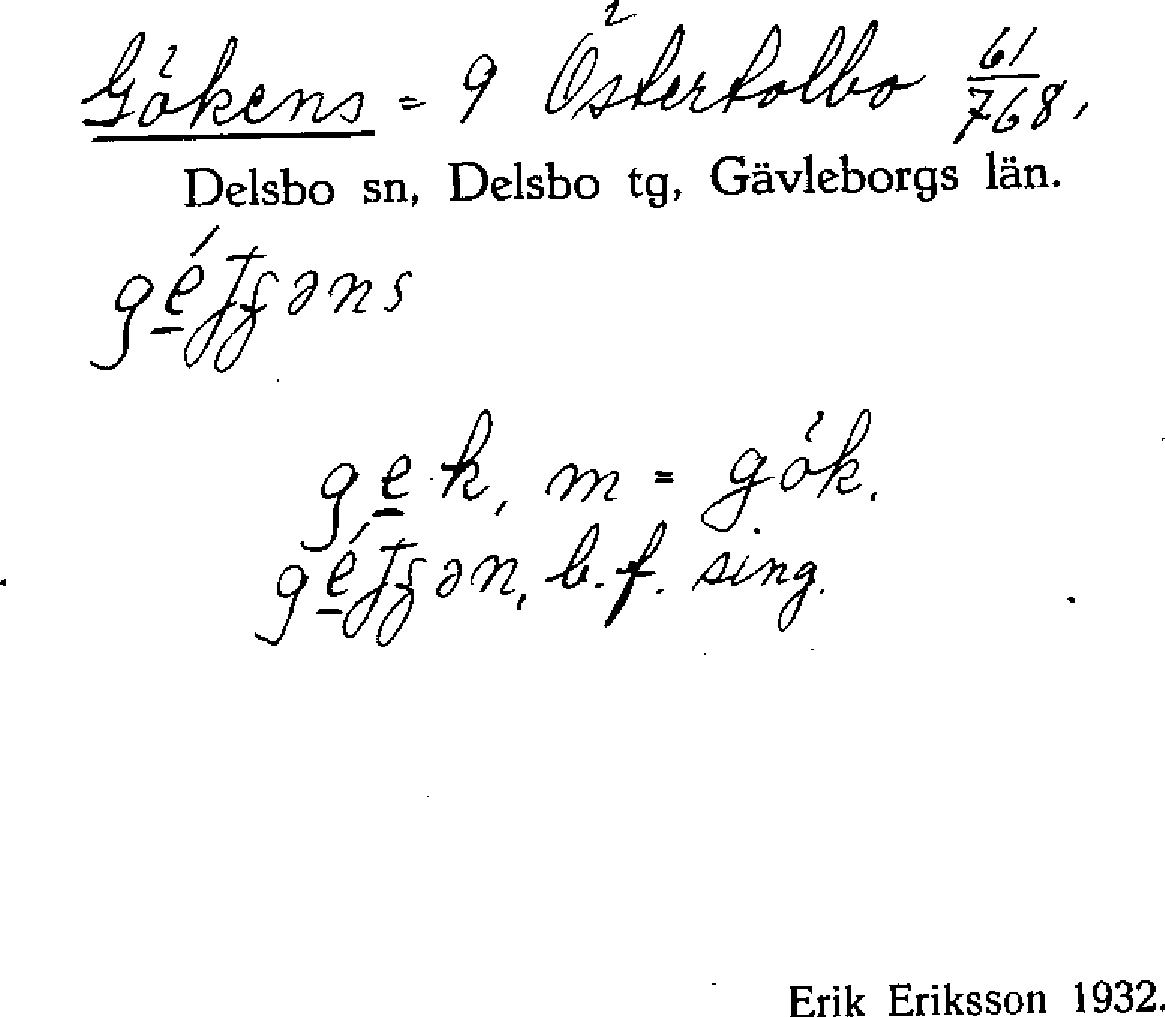 Gökens = 9 Östertolbo 61/768,
Delsbo sn, Delsbo tg, Gävleborgs län.
gek, m = gök.
b.f. sing.
Erik Eriksson 1932.